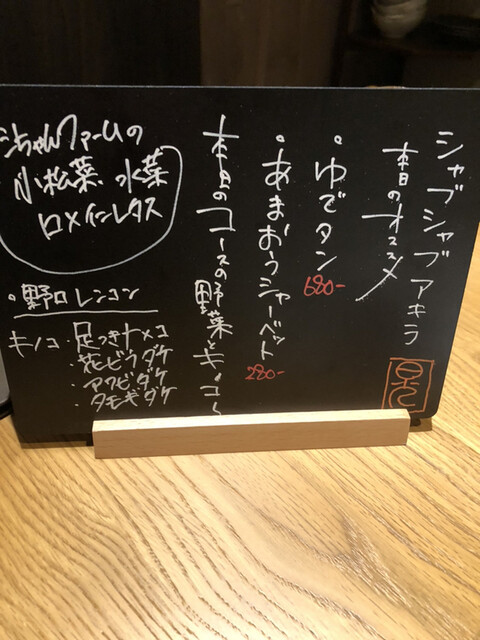 シャブシャブ アキラ
本日のオススメ
・ゆでタン
680-
・あまおうシャーベット
280-
本日のコースの野菜とキノコ〜
ちゃんファームの
小松菜 水菜
ロメインレタス
・野口レンコン
キノコ・足つきナメコ
・花ビラダケ
・アワビダケ
・タモギダケ